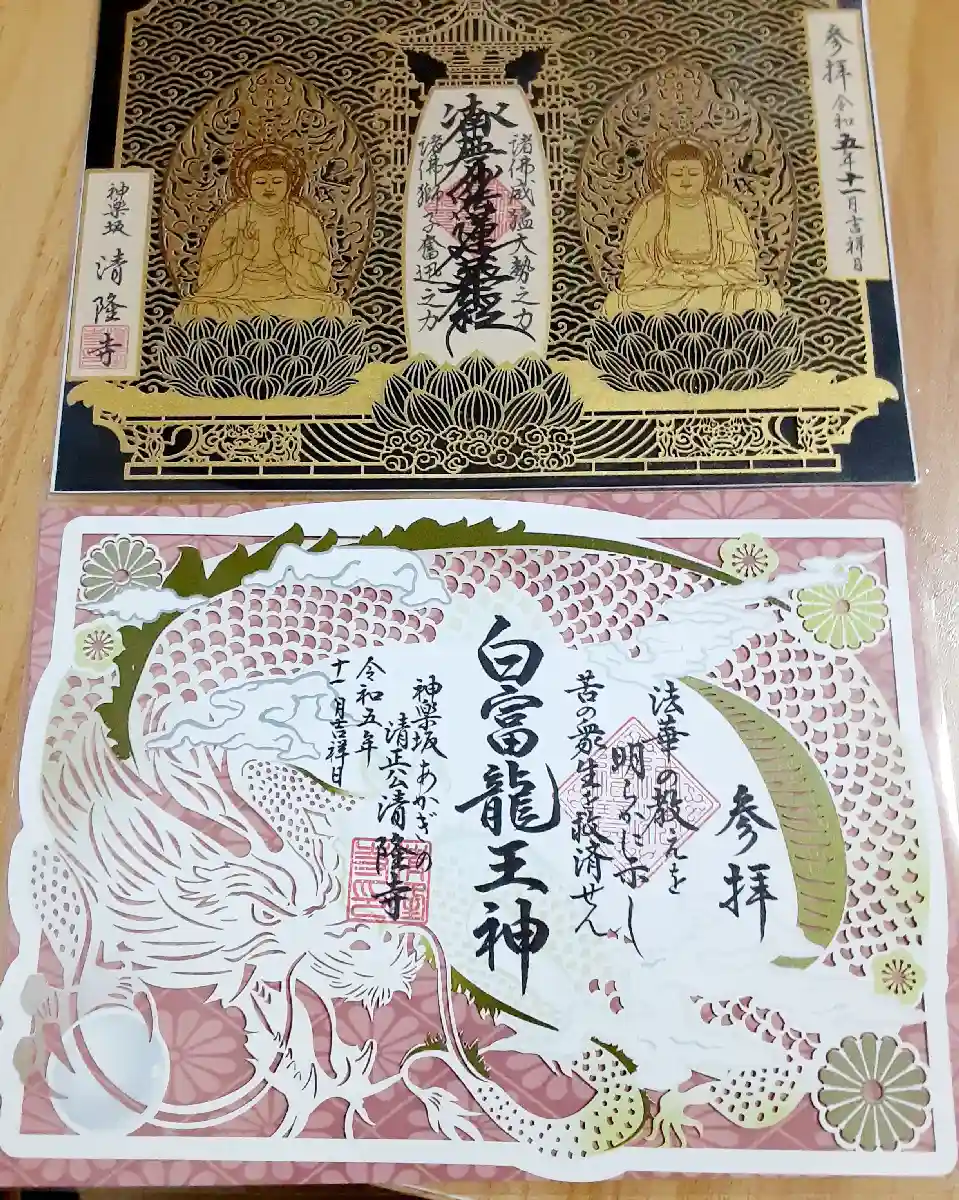 参拝 令和五年十一月吉祥日
諸佛威猛大勢之力
諸佛獅子奮迅之力
神楽坂
清隆寺
参拝
法華の教えを
明らかに示し
苦の衆生を救済せん
白富龍王神
神楽坂あかぎの
清正公清隆寺
令和五年
十一月吉祥日